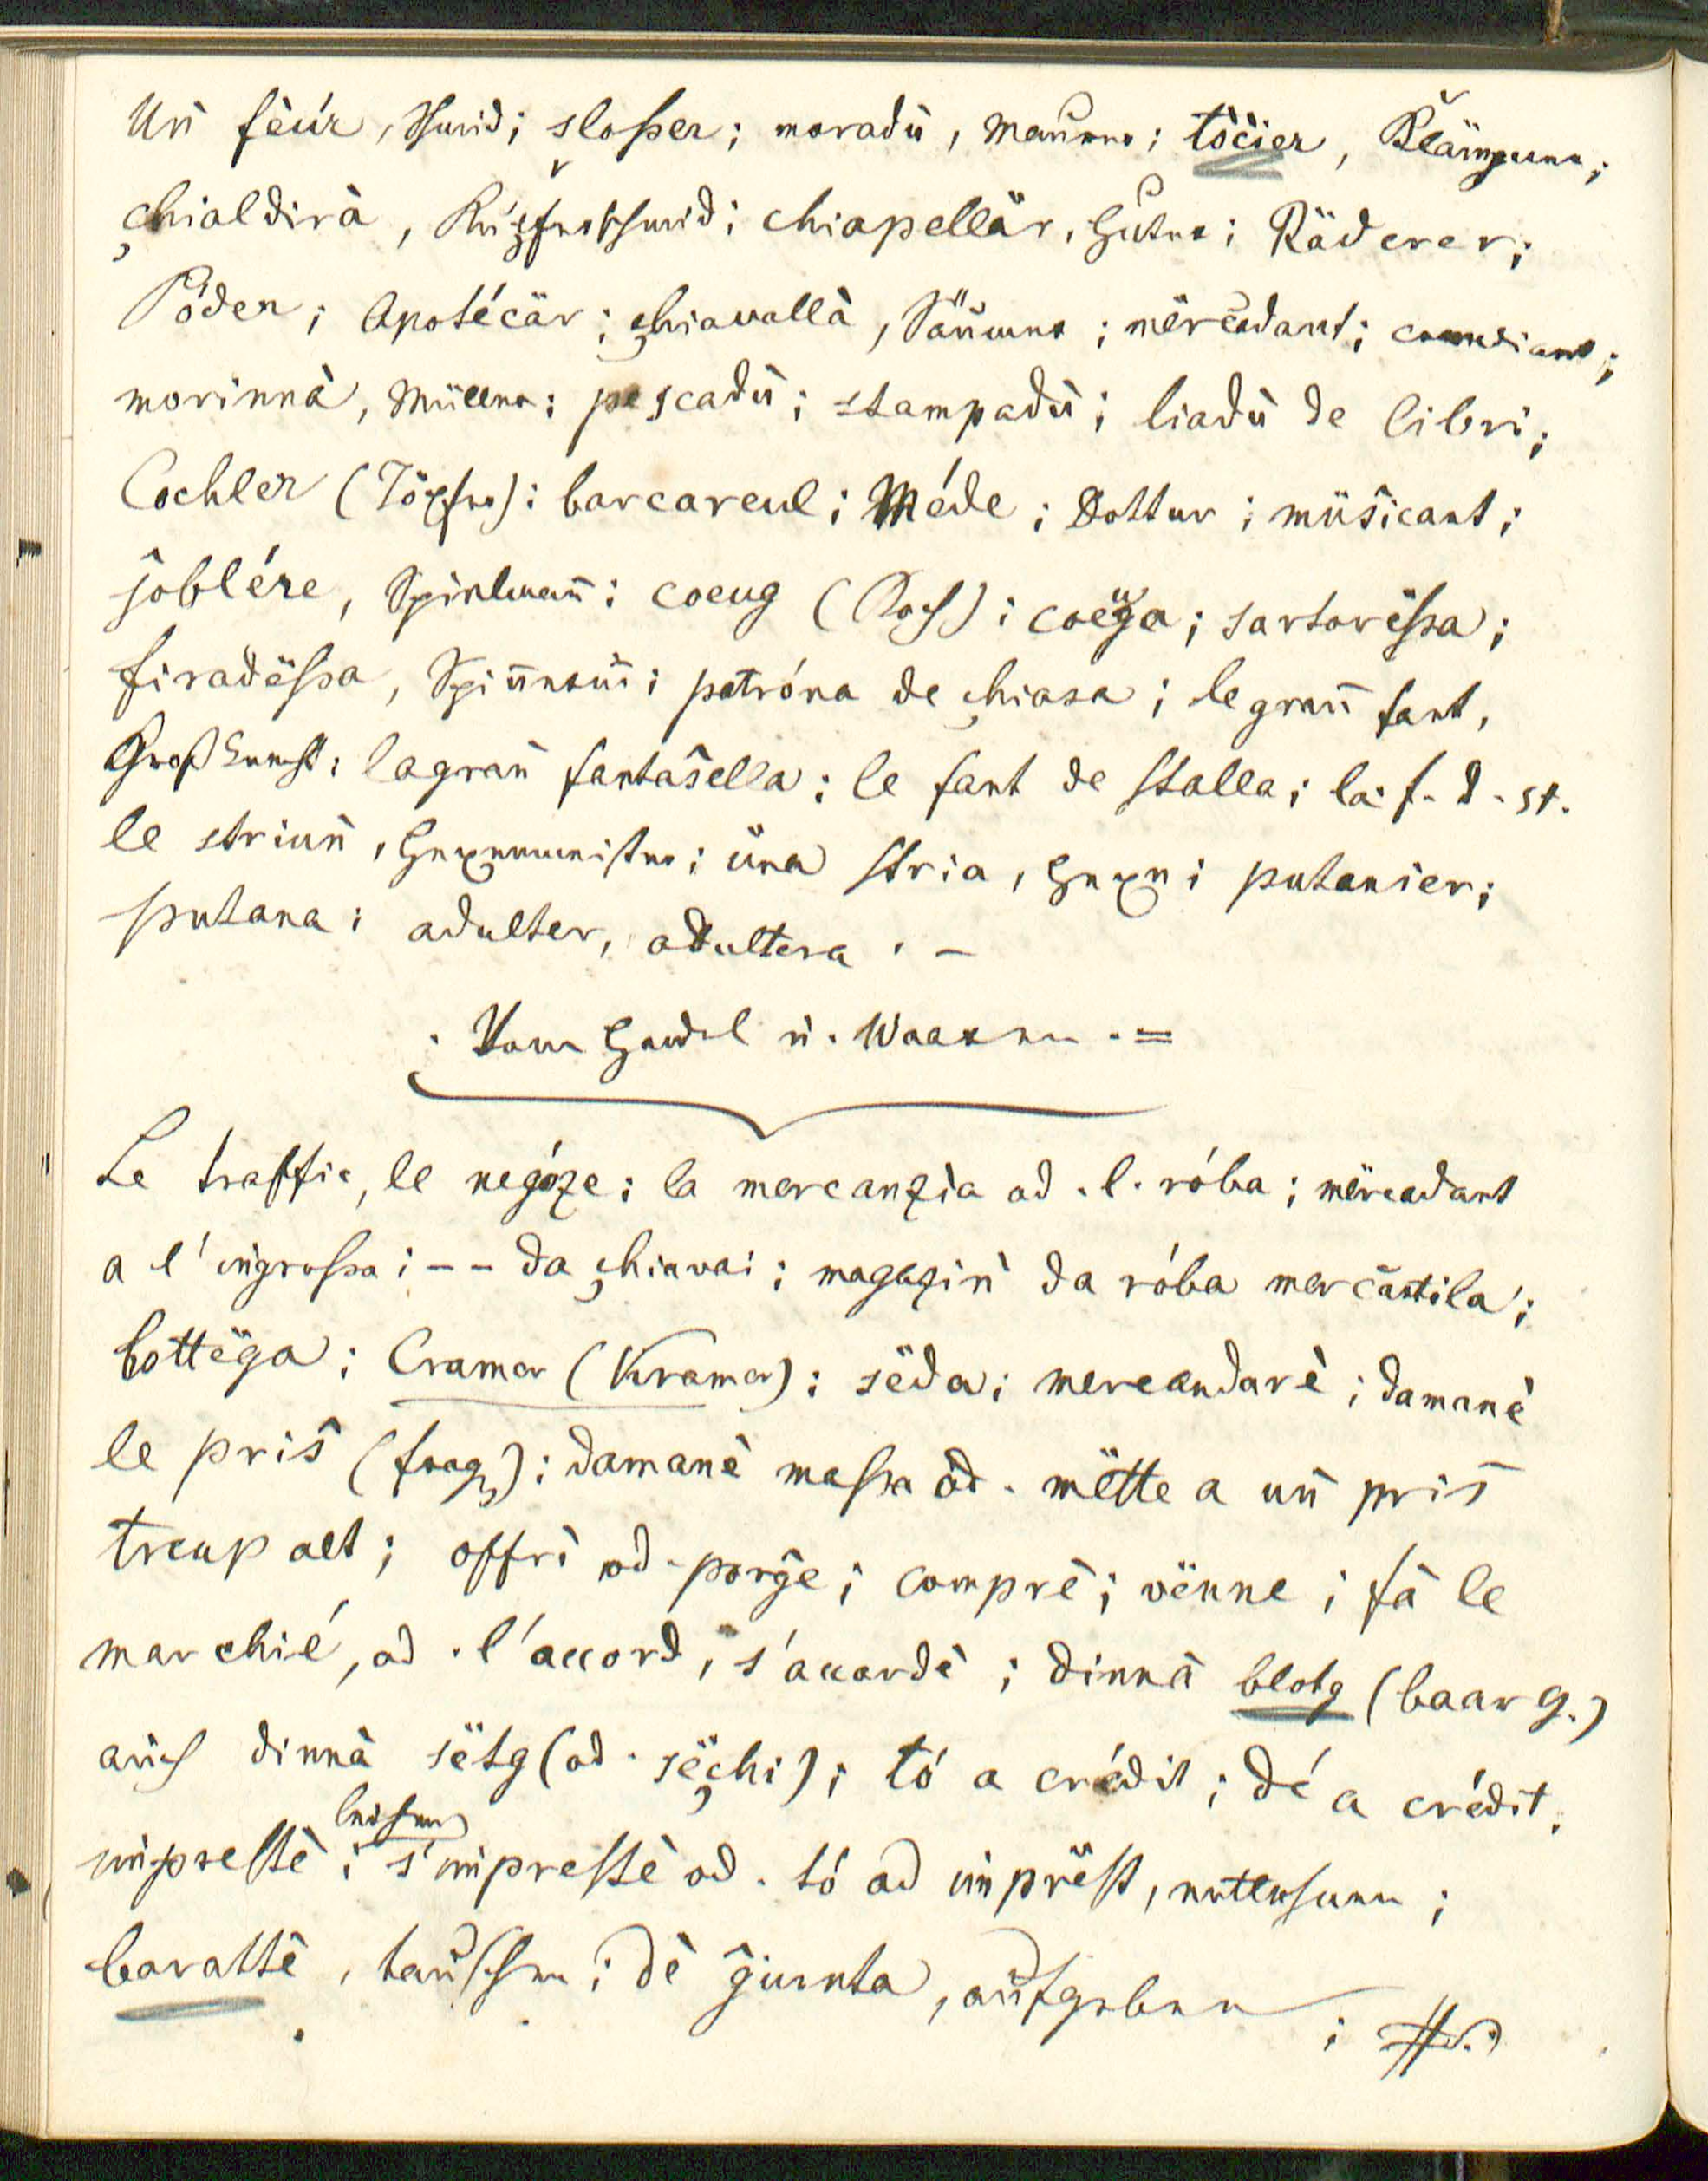 Un̄ fèúr, Schmid; sloßer; moradù, Maurer; tòc̈ier, Klämperer;
chialdirà, Kupferschmid; chiapellär, Huter; Räderer;
Póder; Apotécär; chiavallà, Säumer; mërcadant; comediant;
morinnà, Müller; pescadù; stampadù; liadù de libri;
Cochler (Töpfer); barcareul; Méde; Dottur; müsicant;
joblére, Spielmann; coeug (Koch); coëga; sartorëssa;
firadëssa, Spinnerin; patróna de chiasa; le gran̄ fant,
Großknecht; la gran̄ fantasella; le fant de stalla; la f. d. st.
le striun̄, Hexenmeister; üna stria, Hexe; putanier;
putana; adulter, adultera. –
Vom Handel u. Waaren. =
Le traffic, le negóze; la mercanzìa od. l. róba; mërcadant
a l'ingrossa; -- da chiavai; magazin̄ da róba mercantila;
bottëga; Cramer (Kramer); sëda; mercandarè; damanè
le pris (frag); damanè massa od. mëtte a un̄ pris
treup alt; offrì od. porge; comprè; vënne; fà le
marchié, od. l'accord, s'accordè; dinnà blotg (baar G.)
auch dinnà sëtg (od. sëchi); tó a crédit; dé a crédit;
imprestè; leihen s'imprestè od. tó ad imprëst, entlehnen;
barattè, tauschen; dè giunta, aufgeben;